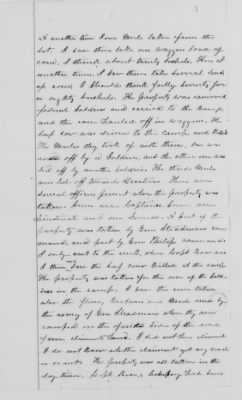 At another time I saw Mule taken from the
lot. I saw them take one waggon load of
corn, I think about twenty bushels. Then at
another time, I saw them take several loads
of corn I should think fully seventy five
or eighty bushels. The property was removed
by Soldiers and carried to the Camp,
and the corn hauled off in waggons. The
beef cow was driven to the camp and killed
The Mules they took off with them, one was
rode off by a Soldier, and the other one was
led off by another soldier. The third Mule
was led off towards Decatur. There were
several officers present when the property was
taken. Some were Captains some were
Lieutenants and one General. A part of the
property was taken by Gen Steadmans com
mand, and part by Gen Phillips command.
I only went to the creek, when
I then, saw the beef cow killed at the camp.
The property was taken for the use of the Sold
iers in the camps. I saw the corn taken,
also the flour, and used by
the army of Gen Steadman when they were
camped on the side of the road
from claimants house. I did not hear claimant
I do not know whether claimant got any receipt
or not. The property was all taken in the
day time. Company had been